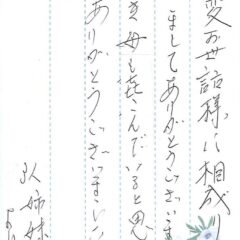 変お世話様に相成
ましてありがとうございま
母も喜こんでいると思
ありがとうございまし
姉妹
より